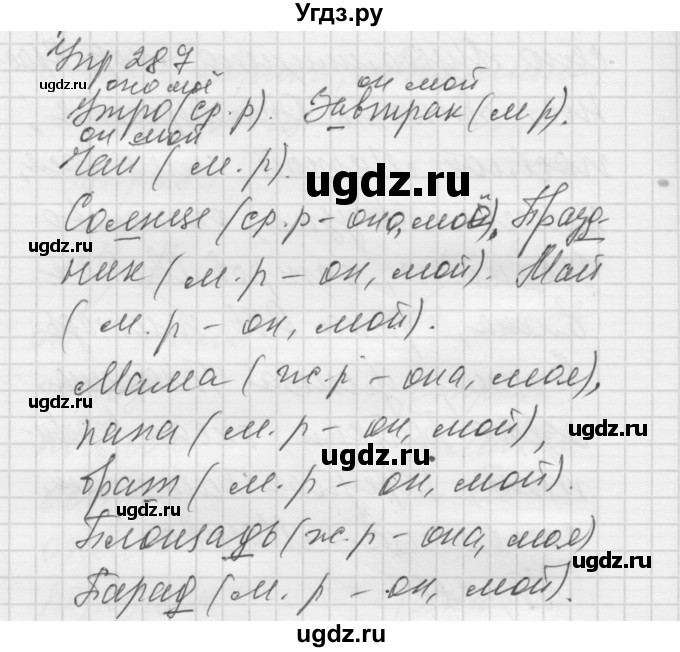 Угдз.ру
Упр 287
оно мой он мой
Утро (ср.р). Завтрак (м р).
он мой
Чай (м.р).
Солнце (ср.р - оно, мой), Празд-
ник (м.р - он, мой). Май
(м.р - он, мой).
Мама (ж.р - она, моя),
папа (м.р - он, мой),
брат (м.р - он, мой).
Площадь (ж.р - она, моя)
Парад (м.р - он, мой).
ugdz.ru
ugdz.ru
ugdz.ru
ugdz.ru
ugdz.ru
ugdz.ru
ugdz.ru
ugdz.ru
ugdz.ru
ugdz.ru